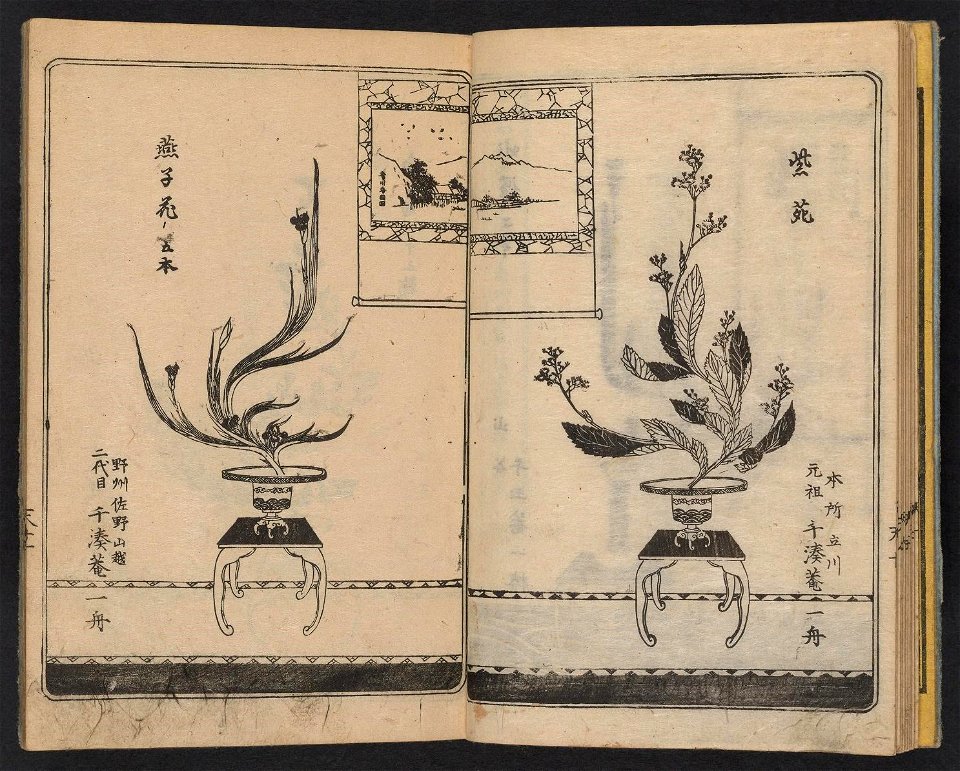 紫苑
本所立川
元祖 千湊菴 一舟
燕子花 五本
野州佐野山越
二代目 千湊菴 一舟